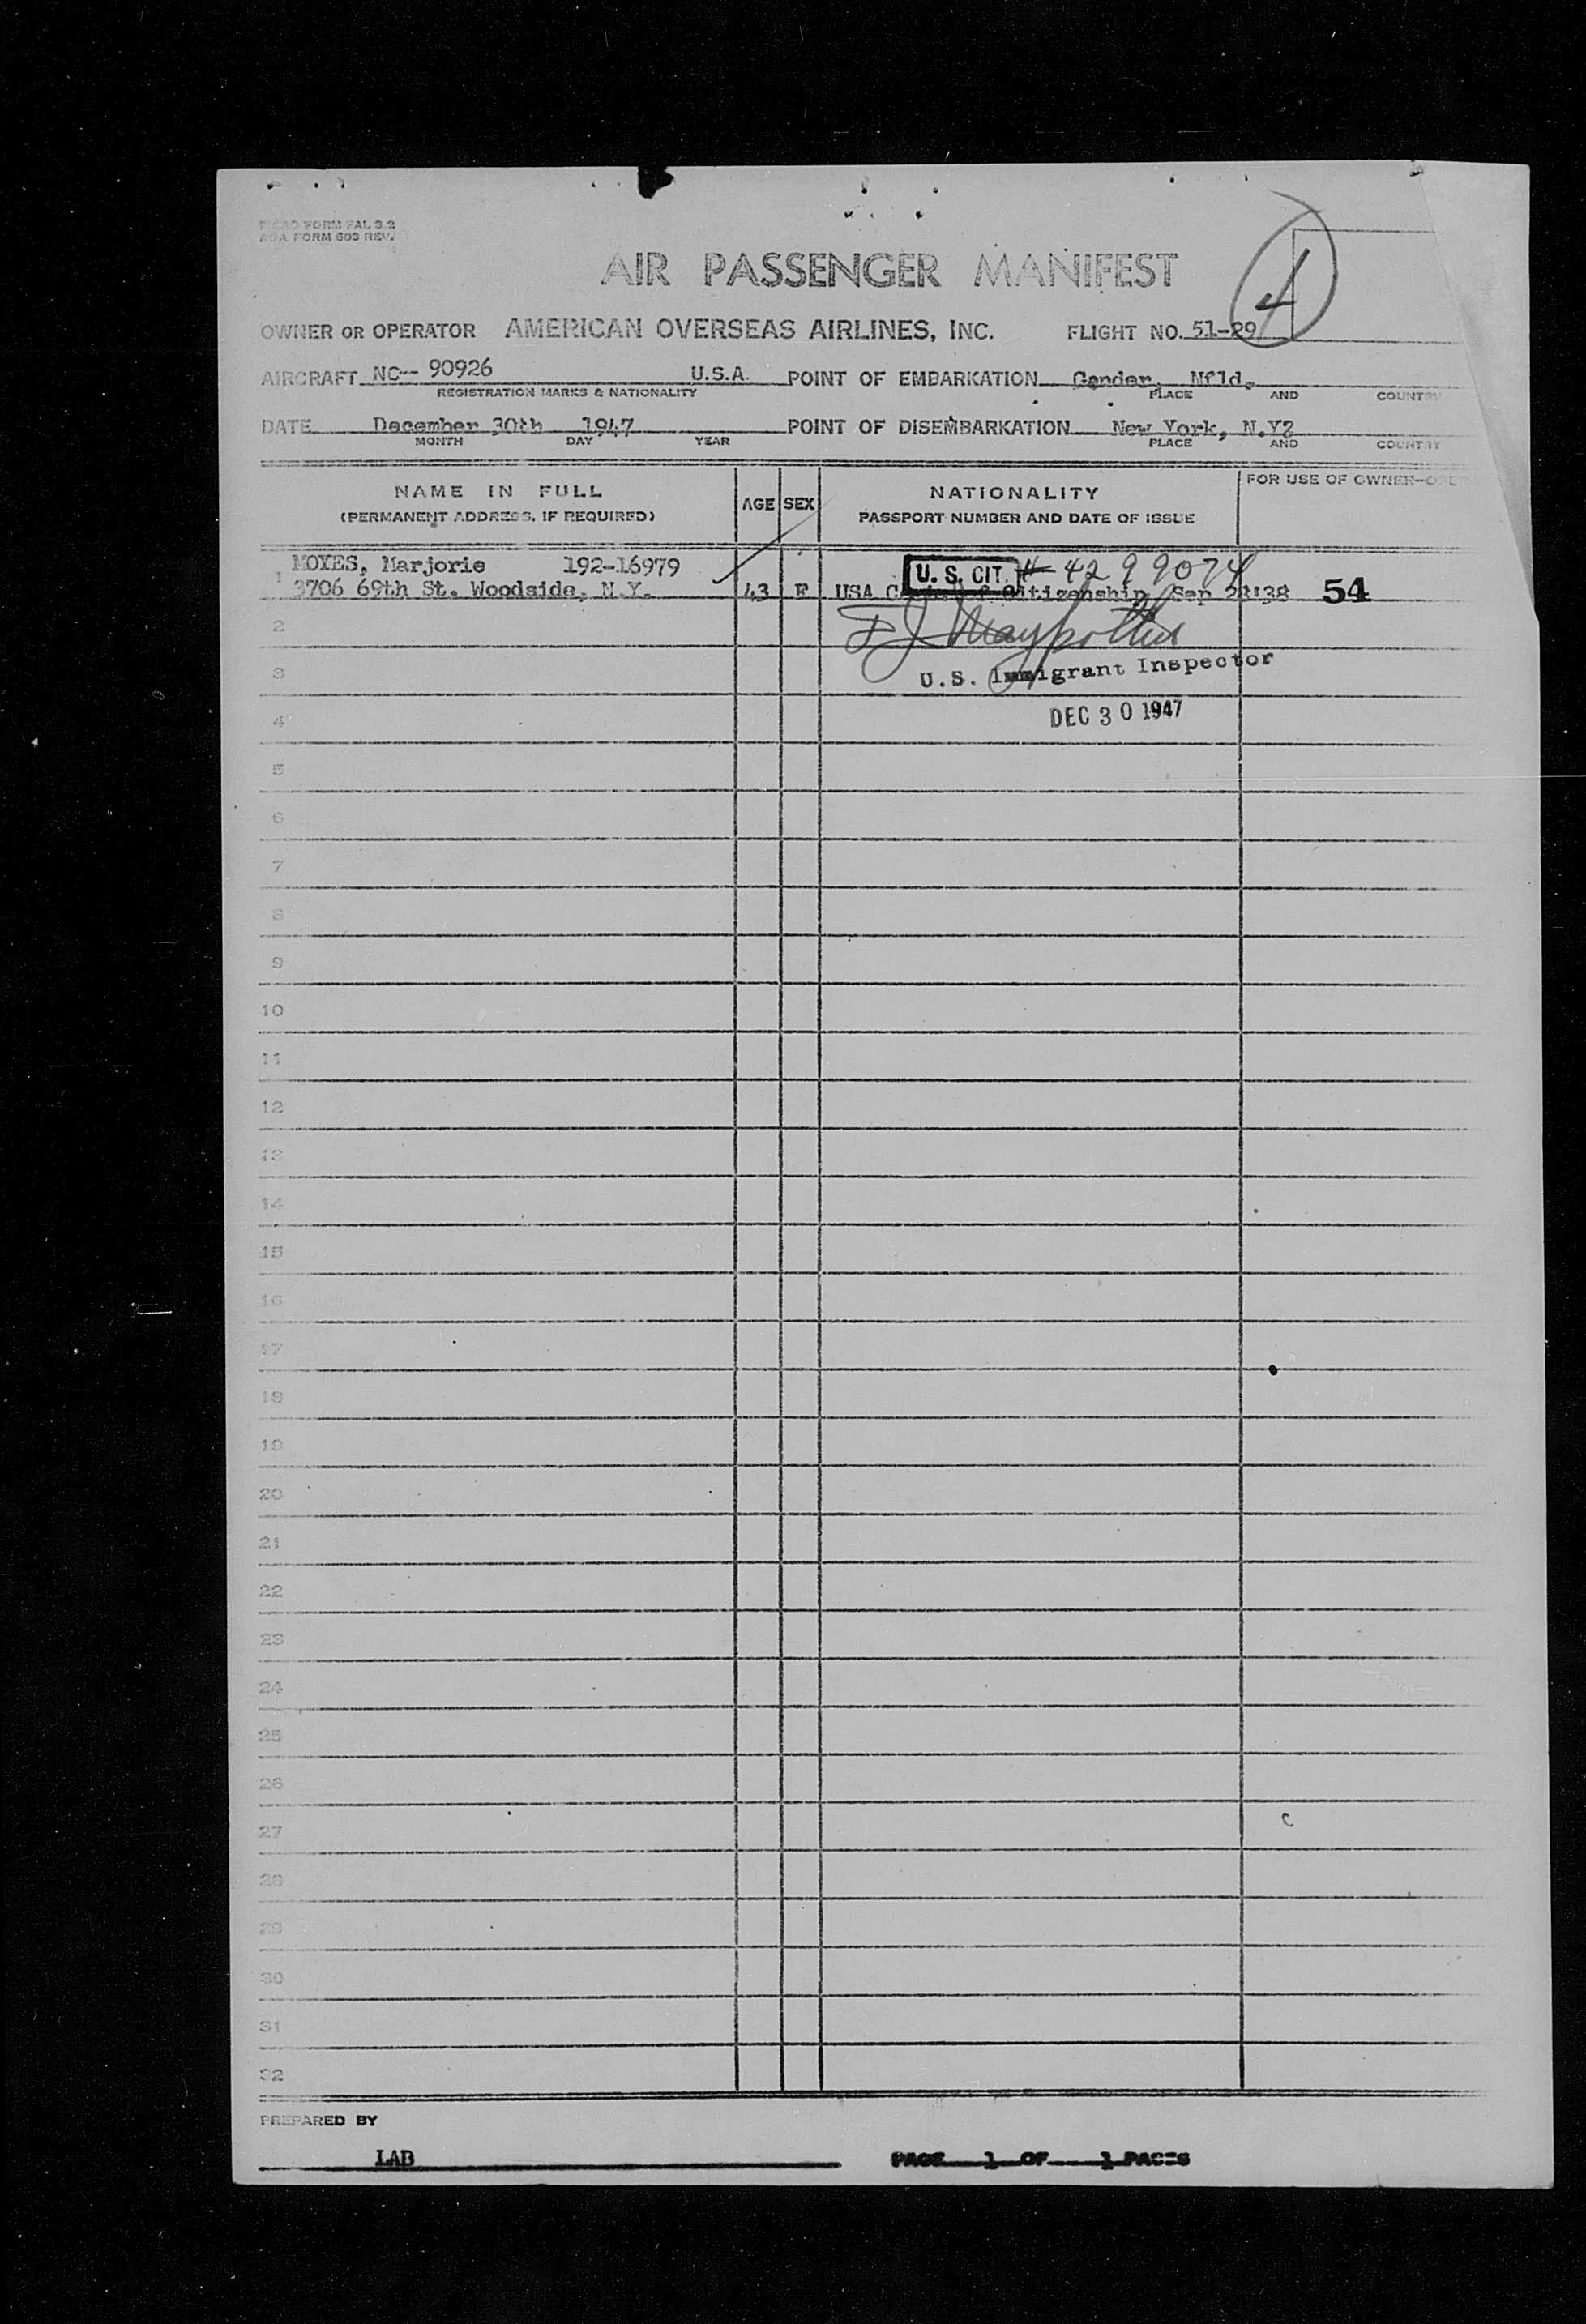 FORM FAL 3.2
AOA FORM 603 REV.
4
AIR PASSENGER MANIFEST
OWNER OR OPERATOR AMERICAN OVERSEAS AIRLINES, INC. FLIGHT NO. 51-29
AIRCRAFT NC-- 90926 U.S.A. POINT OF EMBARKATION Gander, Nfld.
REGISTRATION MARKS & NATIONALITY PLACE AND COUNTRY
DATE December 30th 1947 POINT OF DISEMBARKATION New York, N.Y?
MONTH DAY YEAR PLACE AND COUNTRY
NAME IN FULL
(PERMANENT ADDRESS, IF REQUIRED)
AGE SEX
NATIONALITY
PASSPORT NUMBER AND DATE OF ISSUE
FOR USE OF OWNER-OPER
MOYES, Marjorie 192-16979 U. S. CIT. # 4299074
1 3706 69th St. Woodside, N.Y. 43 F USA Citizenship, Sep 28'38 54
2
3 U.S. Immigrant Inspector
4 DEC 30 1947
5
6
7
8
9
10
11
12
13
14
15
16
17
18
19
20
21
22
23
24
25
26
27
28
29
30
31
32
PREPARED BY
LAB PAGE 1 OF 1 PAGES